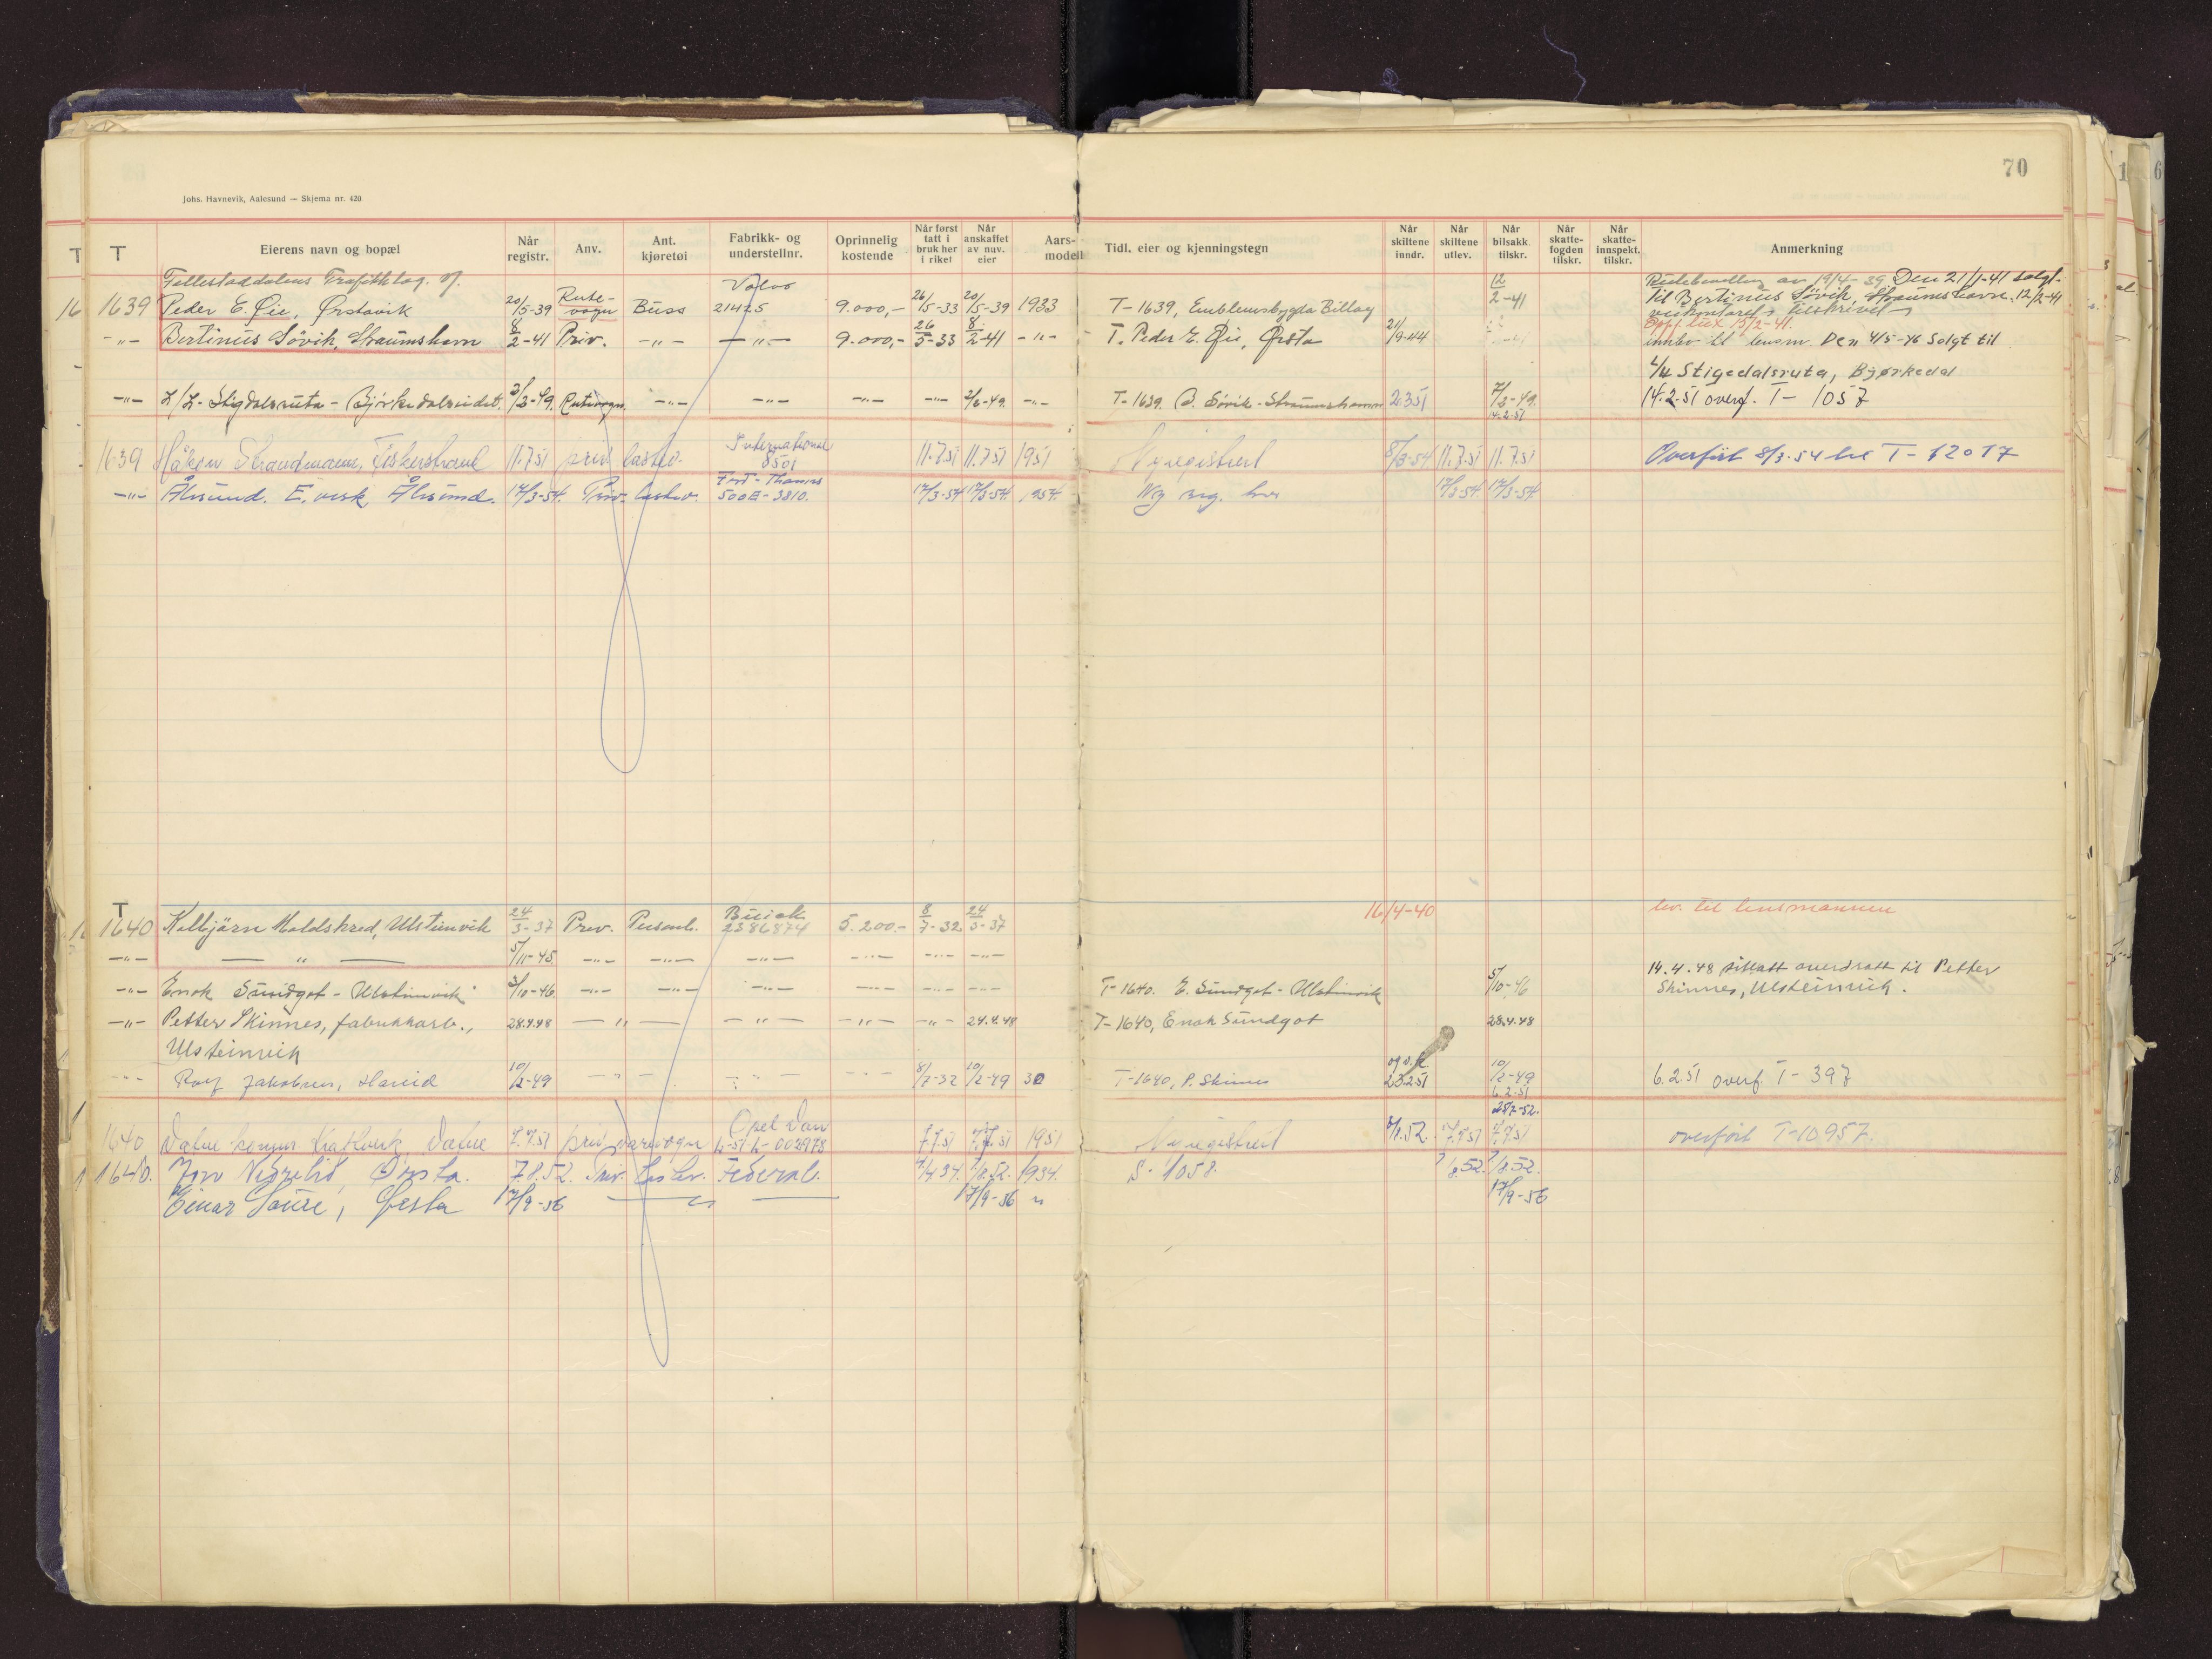 70
Johs. Havnevik, Aalesund — Skjema nr. 420
T Eierens navn og bopæl Når registr. Anv. Ant. kjøretøi Fabrikk- og understellnr. Oprinnelig kostende Når først tatt i bruk her i riket Når anskaffet av nuv. eier Aars-modell Tidl. eier og kjenningstegn Når skiltene inndr. Når skiltene utlev. Når bilsakk. tilskr. Når skatte-fogden tilskr. Når skatte-innspekt. tilskr. Anmerkning
Volvo 12 av 19/4-39 Den 21/1-41 solgt
1639 Peder E. Øie, Ørstavik 20/5-39 Rute-vogn Buss 21425 9.000,- 26/5-33 20/5-39 1933 T-1639, Emblemsbygda Billag 2-41 til Bertinus Søvik, Straumshavn. 12/2-41
-"- Bertinus Søvik, Straumshavn 8/2-41 Priv. -"- -"- 9.000,- 26/5-33 8/2-41 -"- T. Peder E. Øie, Ørsta 21/9-44 15/2-41. innlev til lensm. Den 4/5-46 Solgt til
L/L Stigedalsruta, Bjørkedal
-"- L/L - Stigdalsruta - 2/3-49. Rutevogn -"- -"- -"- -"- 2/6-49. -"- T-1639. B. Søvik - Straumshamn 2.3.51 7/3-49. 14.2.51 14.2.51 overf. T-1057
International
1639 Håkon Strandmann, Fiskerstrand 11.7.51 priv lastev. 8501 11.7.51 11.7.51 1951 Nyregistrert 8/3-54 11.7.51 11.7.51 Overført 8/3-54 til T-12017
Ford-Thames
-"- Ålesund. E. verk Ålesund. 17/3-54. Priv. lastev. 500E-3810. 17/3-54 17/3-54. 1954. Ny reg. 17/3-54 17/3-54
T 24 Buick 8 24 16/4-40 lev. til lensmannen
1640 Kolbjørn Moldskred, Ulsteinvik 3-37 Priv. Personb. 2386874 5.200.- 7-32 3-37
-"- — " — 5/11-45 -"- -"- -"- -"- -"- -"-
14.4.48 tillatt overdratt til Petter
-"- Enok Sundgot - Ulsteinvik 3/10-46 -"- -"- -"- -"- -"- -"- T-1640. E. Sundgot - Ulsteinvik 5/10-46 Skinnes, Ulsteinvik.
-"- Petter Skinnes, fabrikkarb., 28.4.48 — " — -"- -"- -"- 24.4.48 T-1640, Enok Sundgot 28.4.48
Ulsteinvik
-"- Rolf Jakobsen, Hareid 10/2-49 -"- -"- -"- 8/7-32 10/2-49 30 T-1640, P. Skinnes 23.2.51 10/2-49 6.2.51 6.2.51 overf. T-397
28.7-52.
Opel Van
1640 Vatne Vatne 7.7.51 priv varevogn L-51 L-002978 7.7.51 7.7.51 1951 Nyregistrert 7.7.51 7.7.51 overført T-10957.
1640. Nedrelid, Ørsta. 7.8.52. Priv. Lastev. Federal. 1934. S-1058. 7/8.52 7/8.52.
Einar Saure, Ørsta 17/9-56 — " — 17/9-56 " 17/9-56